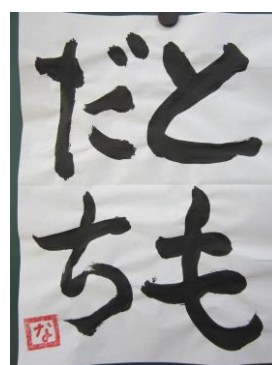 とも
だち
な